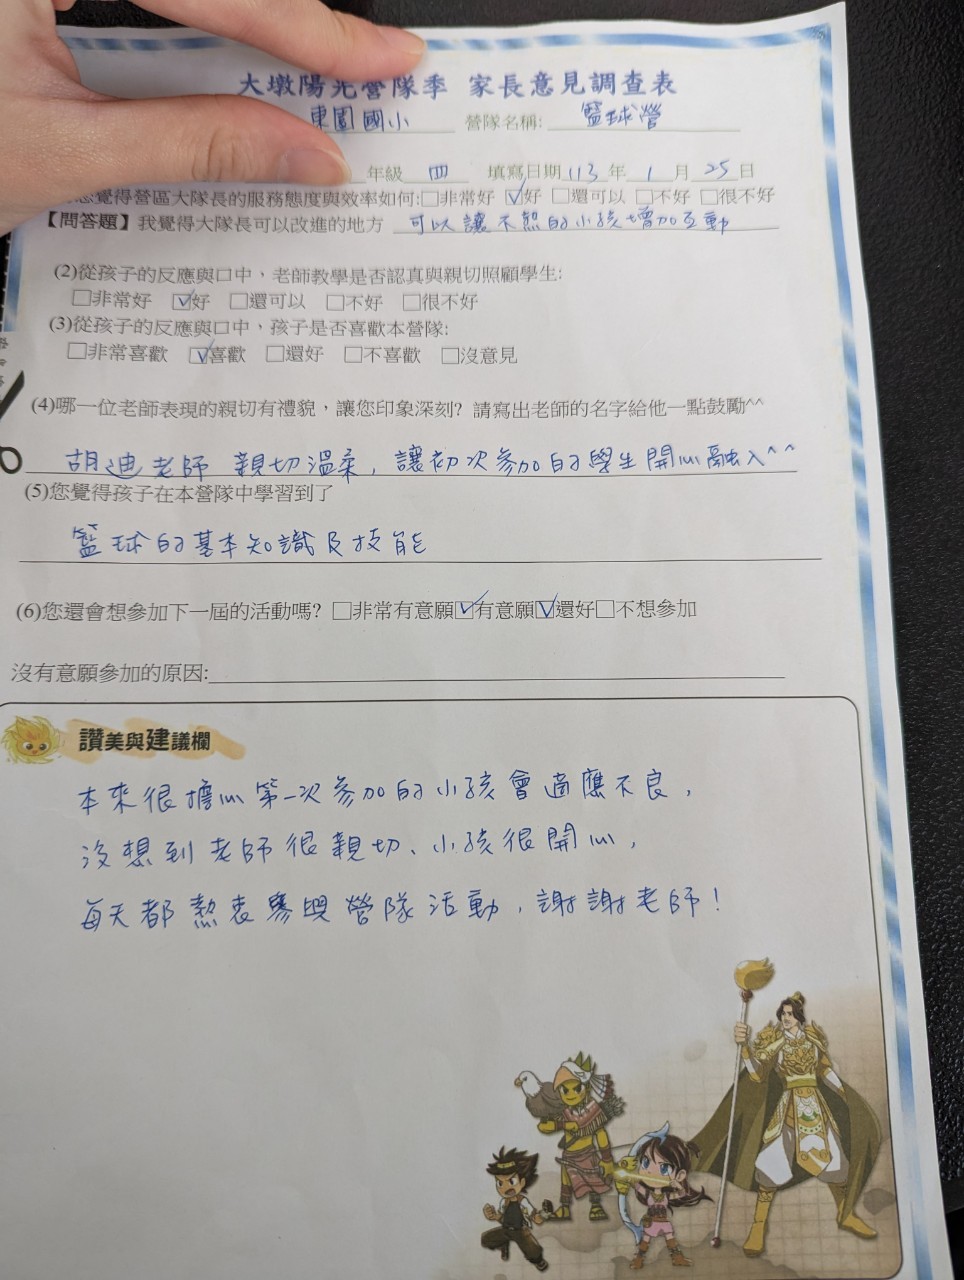 大墩陽光營隊季 家長意見調查表
東園國小 營隊名稱: 籃球營
年級 四 填寫日期 113 年 1 月 25 日
您覺得營區大隊長的服務態度與效率如何:□非常好 ☑好 □還可以 □不好 □很不好
【問答題】我覺得大隊長可以改進的地方 可以讓不熟的小孩增加互動
(2)從孩子的反應與口中，老師教學是否認真與親切照顧學生:
□非常好 ☑好 □還可以 □不好 □很不好
(3)從孩子的反應與口中，孩子是否喜歡本營隊:
□非常喜歡 ☑喜歡 □還好 □不喜歡 □沒意見
(4)哪一位老師表現的親切有禮貌，讓您印象深刻? 請寫出老師的名字給他一點鼓勵^^
胡迪老師 親切溫柔，讓初次參加的學生開心融入^^
(5)您覺得孩子在本營隊中學習到了
籃球的基本知識及技能
(6)您還會想參加下一屆的活動嗎? □非常有意願☑有意願☑還好□不想參加
沒有意願參加的原因:
讚美與建議欄
本來很擔心第一次參加的小孩會適應不良，
沒想到老師很親切、小孩很開心，
每天都熱衷參與營隊活動，謝謝老師！